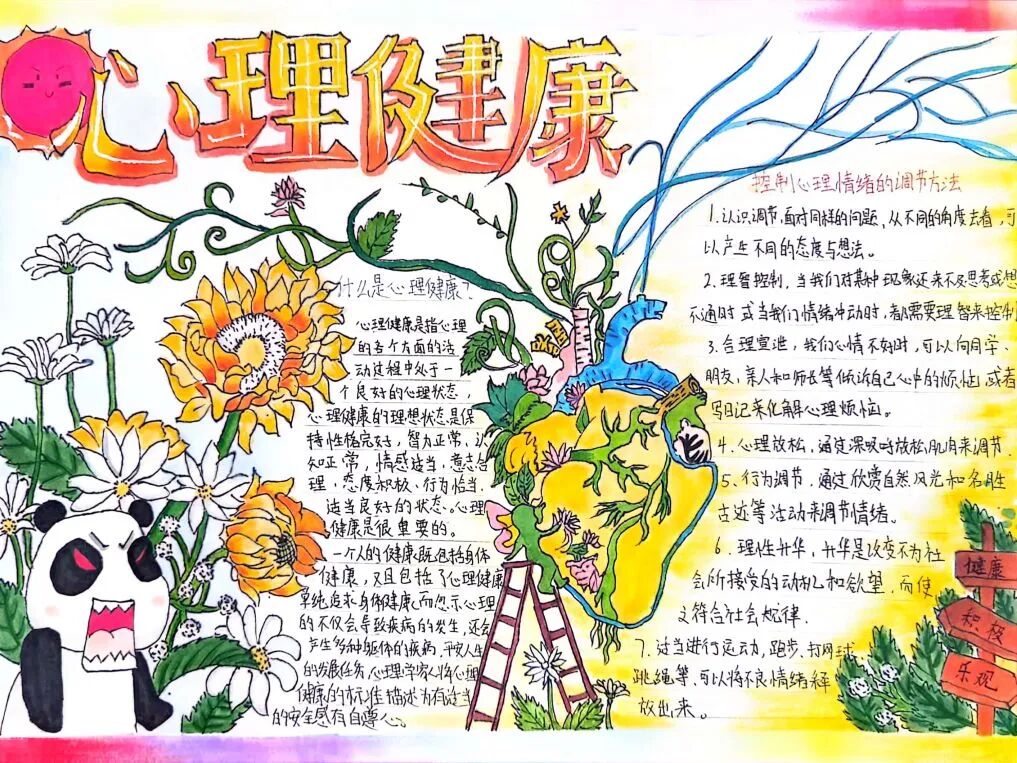 心理健康
什么是心理健康?
心理健康是指心理
的各个方面的活
动过程中处于一
个良好的心理状态,
心理健康的理想状态是保
持性格完好,智力正常,认
知正常,情感适当,意志合
理,态度积极、行为恰当,
适当良好的状态。心理
健康是很重要的。
一个人的健康既包括身体
健康,又且包括了心理健康
单纯追求身体健康而忽示心理
的不仅会导致疾病的发生,还会
产生多种躯体的疾病,
的发展任务,心理学家们将心理
健康的标准描述为有适当
的安全感有自尊心。
控制心理情绪的调节方法
1.认识调节,面对同样的问题,从不同的角度去看,可
以产生不同的态度与想法。
2.理智控制,当我们对某种现象还来不及思考或想
不通时或当我们情绪冲动时,都需要理智来控制
3.合理宣泄,我们心情不好时,可以向同学、
朋友,亲人和师长等倾诉自己心中的烦恼,或者
写日记来化解心理烦恼。
4.心理放松,通过深呼吸放松肌肉来调节.
5、行为调节.通过欣赏自然风光和名胜
古迹等活动来调节情绪。
6、理性升华,升华是改变不为社
会所接受的动机和欲望,而使
之符合社会规律.
7.适当进行运动,跑步、打网球
跳绳等,可以将不良情绪释
放出来。
健康
积极
乐观